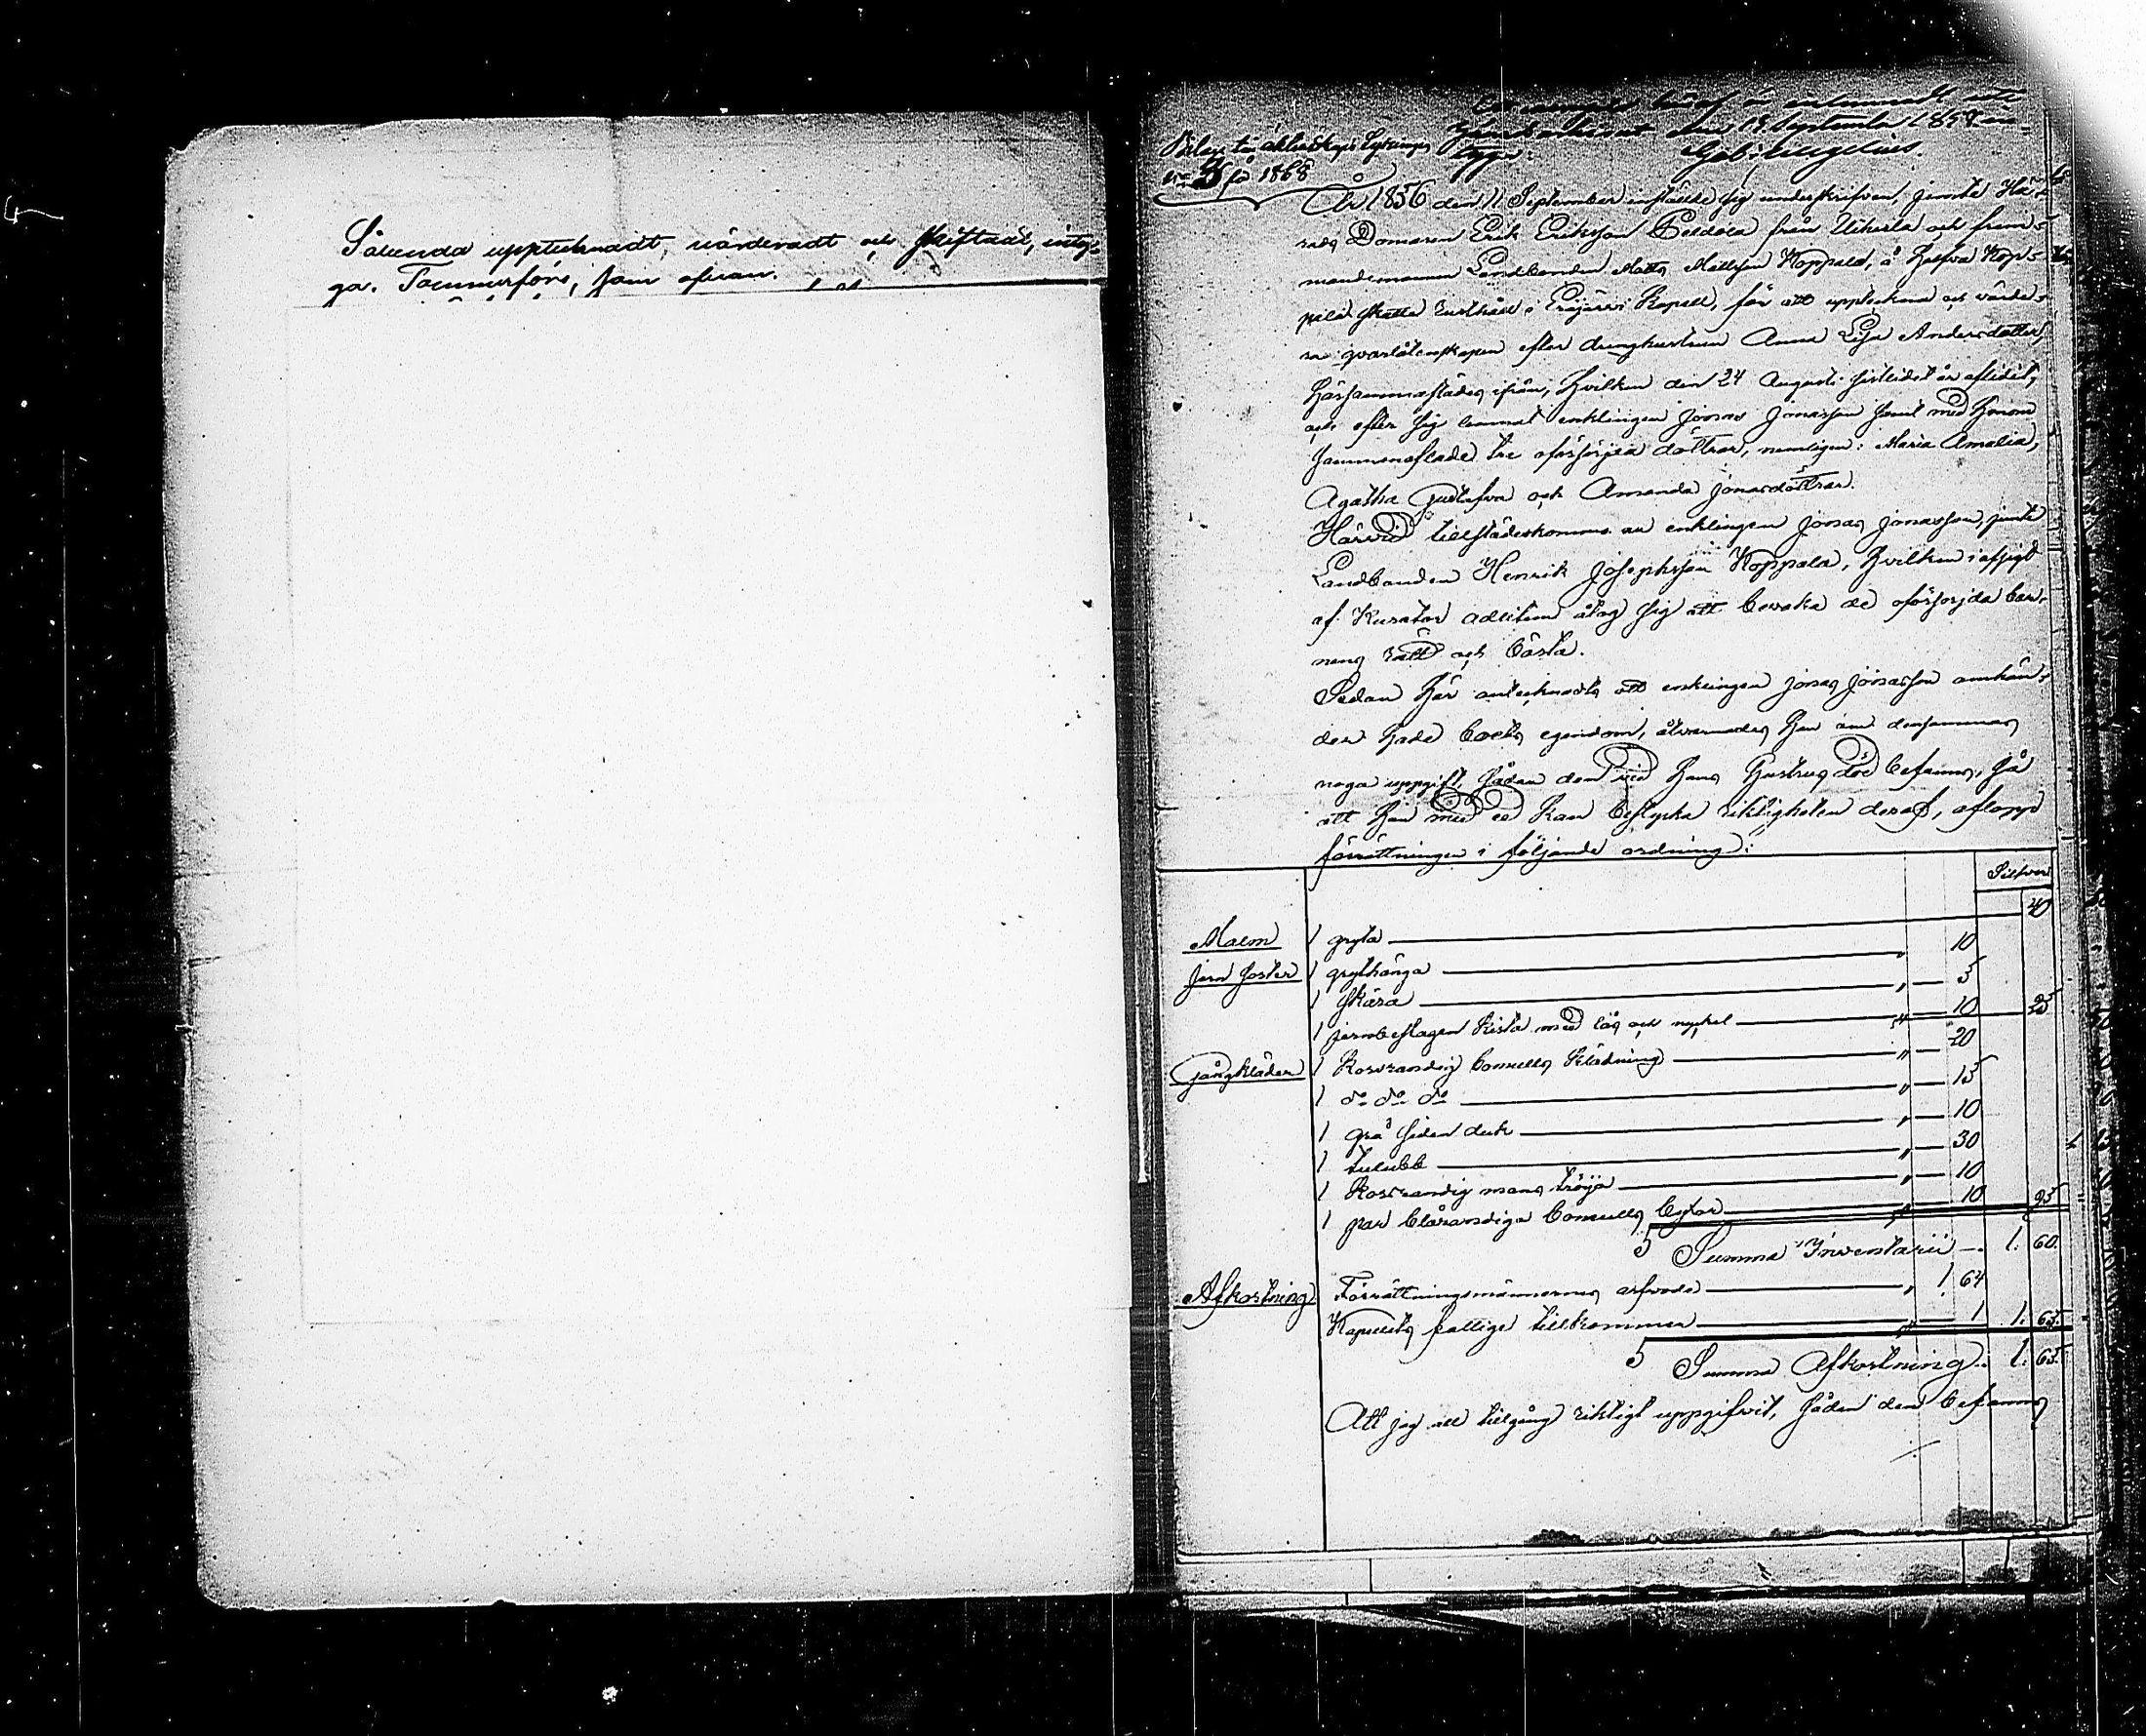 Sålunda upptecknadt, värderadt och skiftadt, inty-
ga. Tammerfors, som ofvan.
den 19 September 1857 in-
tygar Gab:
Bilaga till äktenskaps Lysningen
No 3 för 1868
År 1856 den 11 September inställde sig underskrifven, jemte Hä-
rads Domaren Erik Eriksson Peldola från Uiherla och fram-
mande mannen Landbonden Matts Mattsson Koppala, å halfva Kop-
pala skatte rusthåll i Eräjärvi Kapell, för att uppteckna och värde-
ra qvarlåtenskapen efter drenghustrun Anna Lisa Andersdotter
härsammastädes ifrån, hvilken den 24 Augusti sistledet år aflidit,
och efter sig lemnat enklingen Jonas Jonasson samt med honom
sammanaflade tre oförsörjda döttrar, nemligen: Maria Amalia,
Agatha Gustafva och Amanda Jonasdöttrar.
Härvid tillstädeskommo nu enklingen Jonas Jonasson, jemte
Landbonden Henrik Josephsson Koppala, hvilken i afsigt
af Kurator adlitem åtog sig att bevaka de oförsörjda bar-
nens rätt och bästa.
Sedan här antecknadts att enklingen Jonas Jonasson omhän-
der hade boets egendom, åtvarnades han om densammas
noga uppgift, sådan den vid hans hustrus död befanns, så
att han med ed kan bestyrka riktigheten deraf, aflopp
förrättningen i följande ordning:
Silfver
Malm 1 gryta 40
Jern saker 1 grythänga " 10
1 skära " 5
1 jernbeslagen kista med lås och nyckel " 10 25
Gångkläder 1 korsrandig bomulls klädning " 20
1 do do do " 15
1 grå siden duk " 10
1 tulubb " 30
1 korsrandig mans tröja " 10
1 par blårandiga bomulls byxor " 10 95
S Summa Inventarii 1. 60.
Afkortning Förrättningsmännernes arfvode " 1 64
Kapellets fattige tillkommer " 1 1. 65.
S Summa Afkortning 1. 65.
Att jag all tillgång riktigt uppgifvit, sådan den befanns